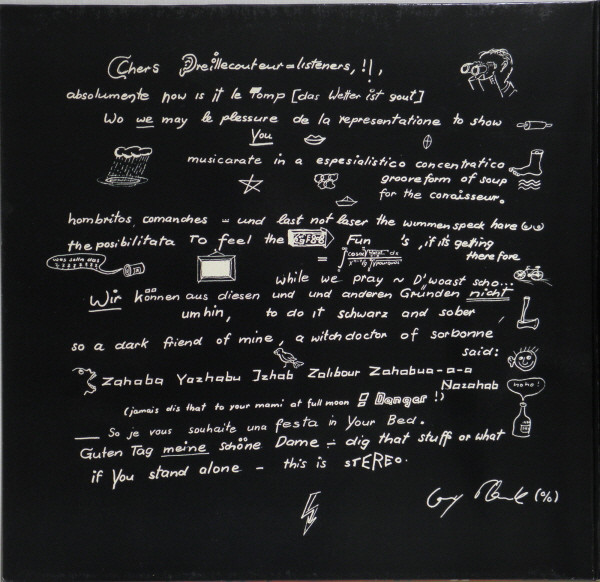 Chers Oreillecouteur=listeners, !!,
absolumente now is it le Tomp [das Wetter ist gout]
Wo we may le plessure de la representatione to show
You
musicarate in a espesialistico concentratico
grooveform of soup
for the conaisseur.
hombritos comanches = und last not laser the wummenspeck have
the posibilitata To feel the Fun 's, if its getting
therefore
was solln das
while we pray ~ D'woast scho...
Wir können aus diesen und und anderen Gründen nicht
umhin, to do it schwarz and sober
so a dark friend of mine, a witchdoctor of sorbonne
said:
Zahaba Yazhabu Izhab Zalibour Zahabua-a-a
Nazahab
hoho!
(jamais dis that to your mami at full moon ! Danger !)
So je vous souhaite una festa in Your Bed.
Guten Tag meine schöne Dame ÷ dig that stuff or what
if You stand alone - this is STEREO.
(%)